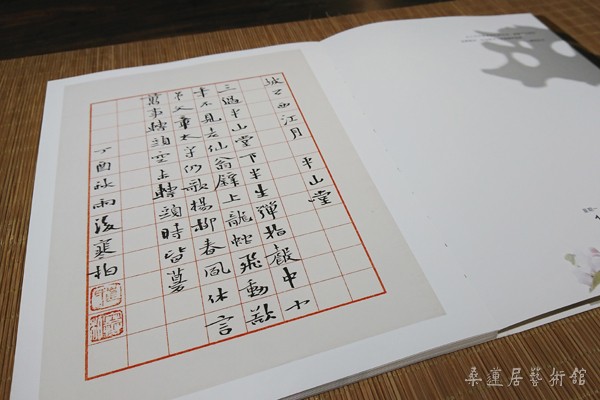 坡公西江月 平山堂
三過平山堂下半生彈指聲中十
年不見老仙翁壁上龍蛇飛動欲
弔文章太守仍歌楊柳春風休言
萬事轉頭空未轉頭時皆夢
丁酉秋雨後寒柏
桑蓮居藝術館